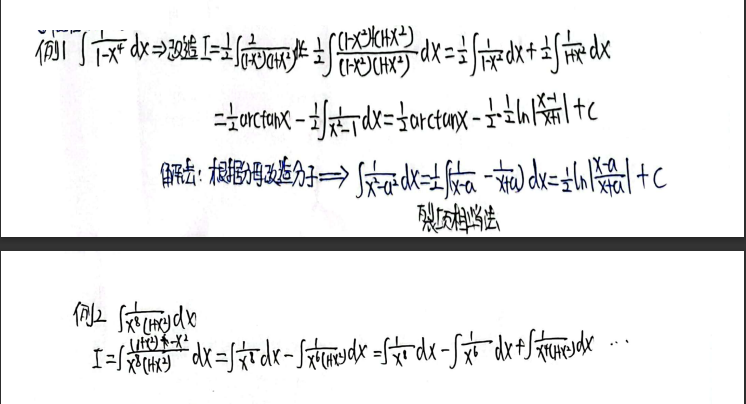 例1 ∫ 1/(1-x⁴) dx ⇒ 改造 I = 1/2 ∫ 2/((1-x²)(1+x²)) dx = 1/2 ∫ ((1-x²)+(1+x²))/((1-x²)(1+x²)) dx = 1/2 ∫ 1/(1-x²) dx + 1/2 ∫ 1/(1+x²) dx
= 1/2 arctanx - 1/2 ∫ 1/(x²-1) dx = 1/2 arctanx - 1/2·1/2 ln|(x-1)/(x+1)| + C
解法：根据分母改造分子 ⇒ ∫ 1/(x²-a²) dx = 1/2 ∫ (1/(x-a) - 1/(x+a)) dx = 1/2 ln|(x-a)/(x+a)| + C
裂项相消法
例2 ∫ 1/(x⁸(1+x²)) dx
I = ∫ ((1+x²)-x²)/(x⁸(1+x²)) dx = ∫ 1/x⁸ dx - ∫ 1/(x⁶(1+x²)) dx = ∫ 1/x⁸ dx - ∫ 1/x⁶ dx + ∫ 1/(x⁴(1+x²)) dx ...